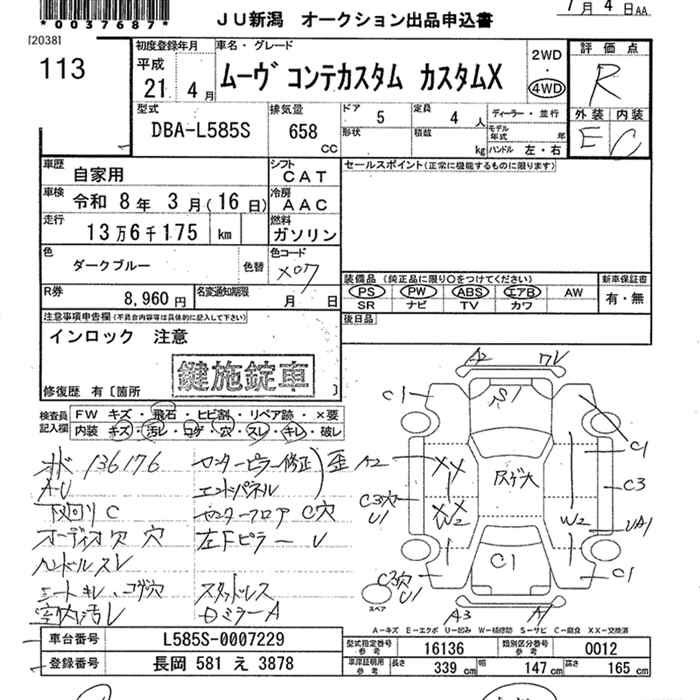 *0037687*
JU新潟 オークション出品申込書
7月 4日AA
[2038]
113
初度登録年月
平成
21年 4月
車名・グレード
ムーヴ コンテカスタム カスタムX
2WD
4WD
評価点
R
外装 内装
E C
型式
DBA-L585S
排気量
658
CC
ドア 5
定員 4 人
ディーラー・並行
形状
積載 kg
モデル年式 年
ハンドル 左・右
車歴
自家用
シフト
CAT
セールスポイント(正常に機能するものに限ります)
車検
令和 8年 3月(16日)
冷房
AAC
走行
13万6千175 km
燃料
ガソリン
色
ダークブルー
色替
色コード
X07
装備品(純正品に限り○をつけてください)
新車保証書
PS PW ABS エアB AW
SR ナビ TV カワ
有・無
R券
8,960円
名変通知期限
月 日
後日品
注意事項申告欄(不具合内容等は具体的に記入して下さい)
インロック 注意
鍵施錠車
修復歴 有〔箇所 〕
検査員記入欄
FW キズ・飛石・ヒビ割・リペア跡・×要
内装 キズ・汚レ・コゲ・穴・スレ・キレ・破レ
オド 136176
センターピラー修正)歪
A-U
エンドパネル
下回りC
センターフロア C穴
オーディオ欠 穴
左Fピラー U
ハンドルスレ
シートキレ、コゲ穴
スタッドレス
室内汚レ
Dミラー A
A2
C1
S1
C1
A2
XX
C3
C3穴
U1
反ゲ大
XX
W2
W2
UA1
C1
C3穴
U1
C1
スペア
A3
A1
A-キズ E-エクボ U-凹み W-補修跡 S-サビ C-腐食 XX-交換済
車台番号
L585S-0007229
型式指定番号 参考
16136
類別区分番号 参考
0012
登録番号
長岡 581 え 3878
車庫証明用 参考
長さ 339 cm
幅 147 cm
高さ 165 cm